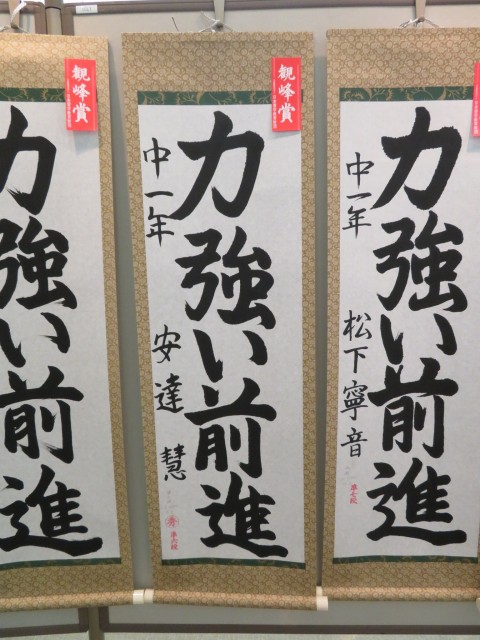 力強い前進
中一年
松下寧音
準七段
観峰賞
力強い前進
中一年
安達慧
秀
準六段
観峰賞
力強い前進